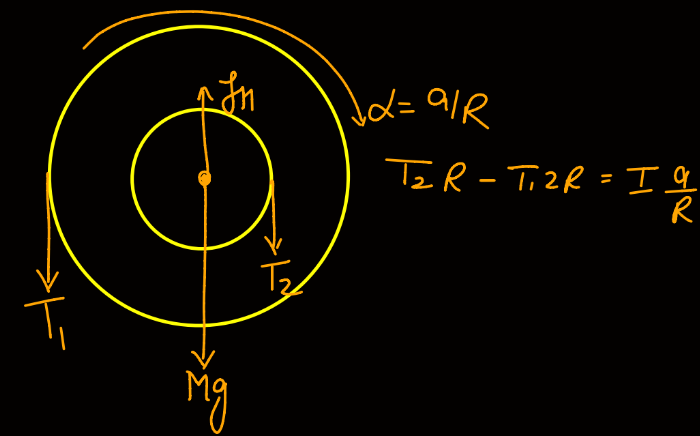 fn
α = a/R
T₂ R − T₁ 2R = I a/R
T₂
T₁
Mg